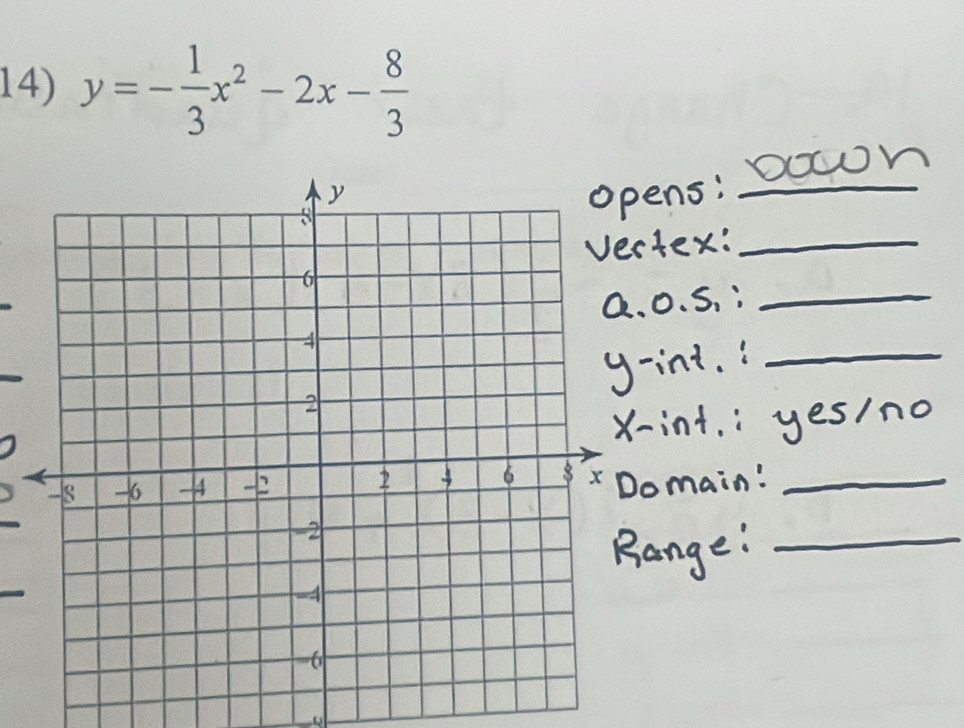 14) y = -1/3x² - 2x - 8/3
opens: Down
vertex:
a.o.s.:
y-int.:
x-int.: yes/no
Domain:
Range:
y
8
6
4
2
-8 -6 -4 -2 2 4 6 8 x
-2
-4
-6